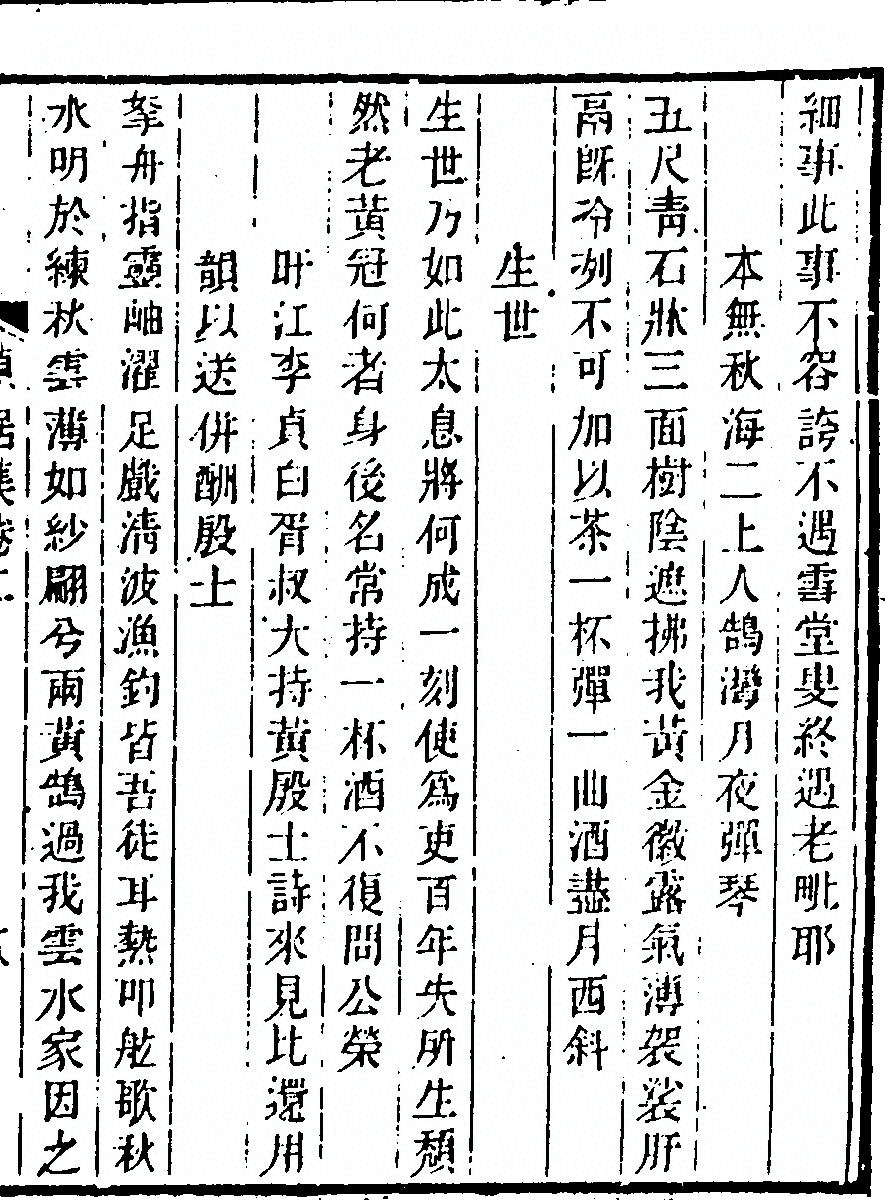 細事此事不容誇不遇雪堂叟終遇老毗耶
本無秋海二上人鵠灣月夜彈琴
五尺青石牀三面樹陰遮拂我黃金徽露氣薄袈裟肝
鬲旣冷冽不可加以茶一杯彈一曲酒盡月西斜
生世
生世乃如此太息將何成一刻使爲吏百年失所生頹
然老黃冠何者身後名常持一杯酒不復問公榮
叶江李貞白胥叔大持黃殷士詩來見比還用
韻以送併酬殷士
拏舟指靈岫濯足戲淸波漁釣皆吾徒耳熱叩舷歌秋
水明於練秋雲薄如紗翩兮兩黃鵠過我雲水家因之
貞居集卷二